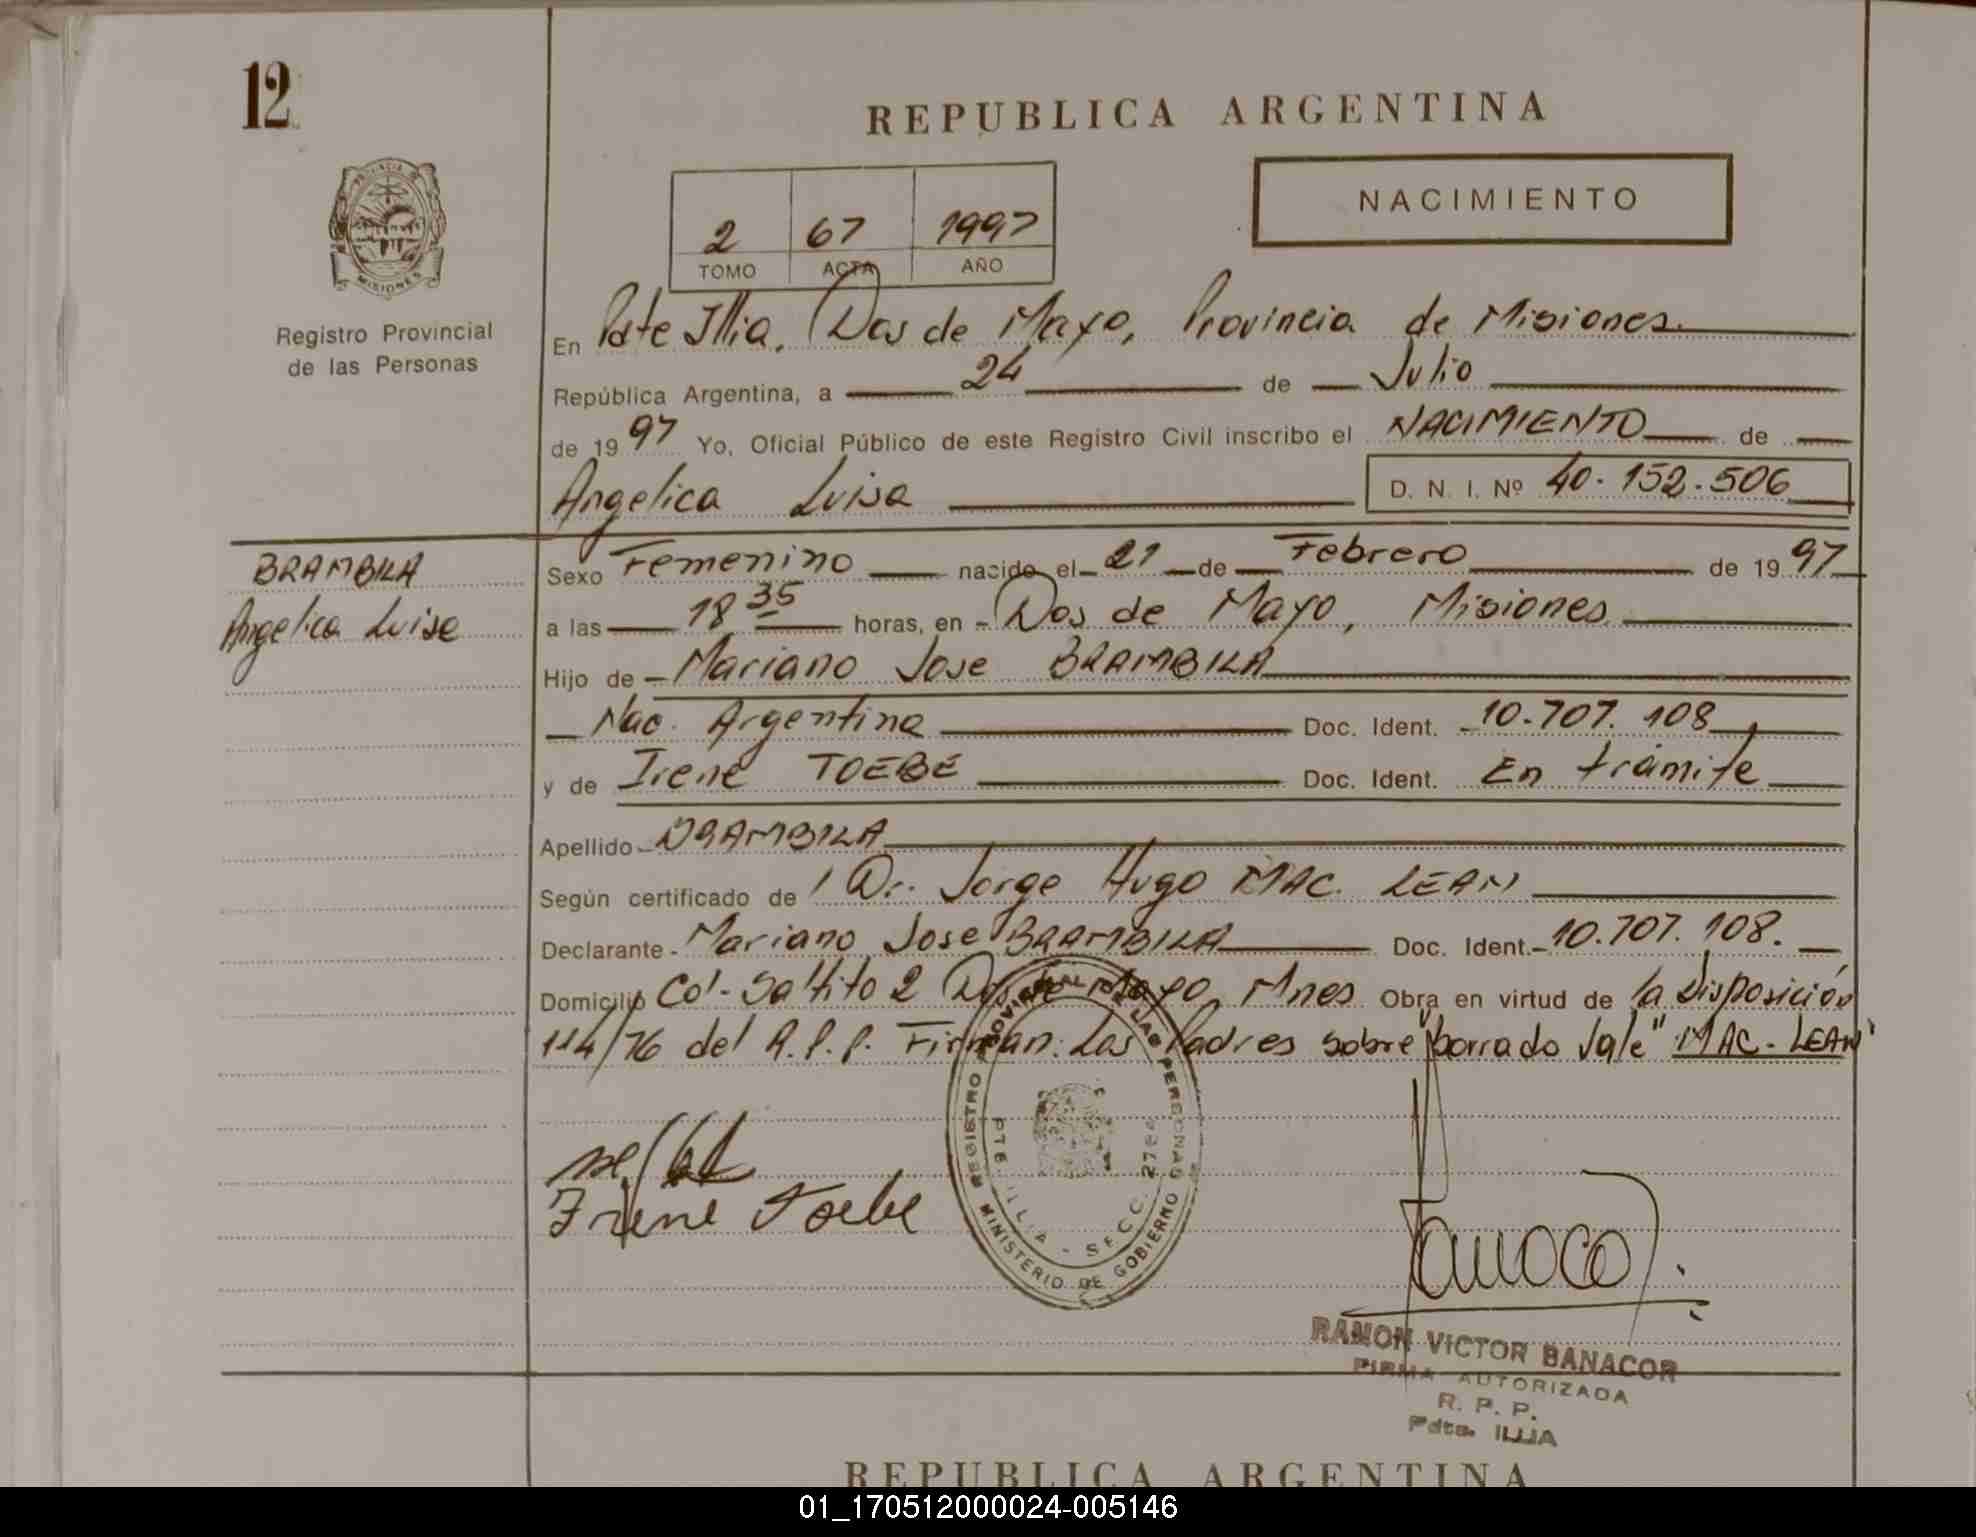 12
REPUBLICA ARGENTINA
PROVINCIA DE
MISIONES
Registro Provincial
de las Personas
NACIMIENTO
2 67 1997
TOMO ACTA AÑO
En Pdte Illia, Dos de Mayo, Provincia de Misiones.
República Argentina, a 24 de Julio
de 1997 Yo, Oficial Público de este Registro Civil inscribo el NACIMIENTO de
Angelica Luisa D. N. I. Nº 40.152.506
BRAMBILA
Angelica Luisa
Sexo Femenino nacido el 21 de Febrero de 1997
a las 18 35 horas, en Dos de Mayo, Misiones
Hijo de Mariano Jose BRAMBILA
Nac. Argentina Doc. Ident. 10.707.108
y de Irene TOEBE Doc. Ident. En trámite
Apellido BRAMBILA
Según certificado de Dr. Jorge Hugo MAC. LEAN
Declarante Mariano Jose BRAMBILA Doc. Ident. 10.707.108.
Domicilio Col. Saltito 2 Dos de Mayo, Mnes Obra en virtud de la Disposición
114/76 del R.P.P. Firman: Los Padres sobre "borrado Vale" "MAC-LEAN"
Irene Toebe
REGISTRO PROVINCIAL DE LAS PERSONAS
MINISTERIO DE GOBIERNO
PTE ILLIA - SECC. 2784
RAMON VICTOR BANACOR
FIRMA AUTORIZADA
R. P. P.
Pdte. ILLIA
REPUBLICA ARGENTINA
01_170512000024-005146